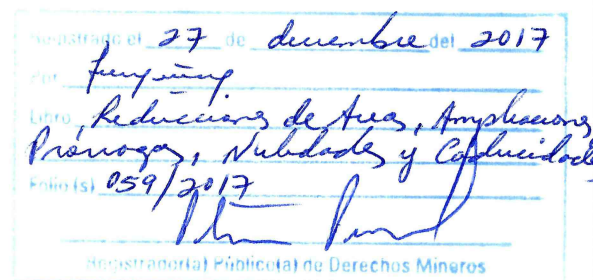 Registrado el 27 de diciembre del 2017
Por
Libro Reducciones de Areas, Ampliaciones,
Prórrogas, Nulidades y Caducidades
Folio (s) 059/2017
Registrador(a) Público(a) de Derechos Mineros